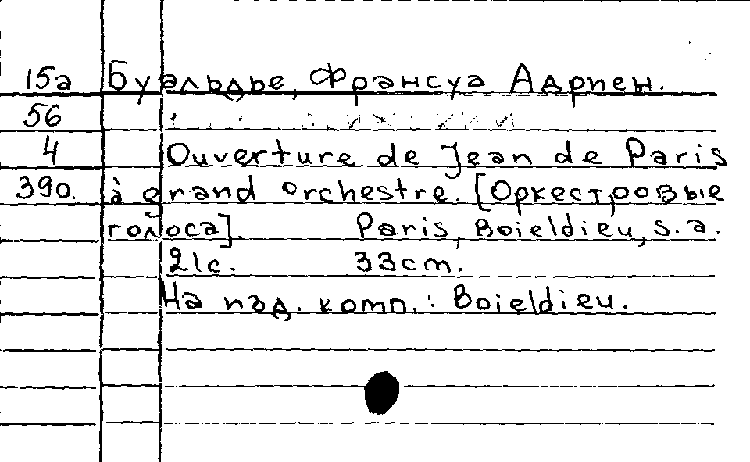 15а Буальдье, Франсуа Адриен.
56
4 Ouverture de Jean de Paris
390. à grand orchestre. [Оркестровые
голоса]. Paris, Boieldieu, s.a.
21с. 33cm.
На изд. комп.: Boieldieu.